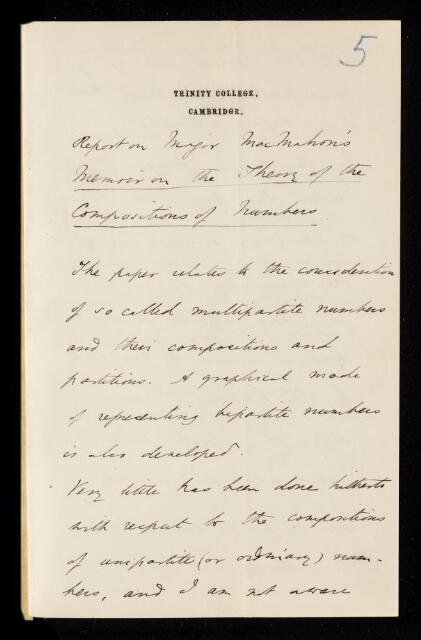 5
TRINITY COLLEGE,
CAMBRIDGE.
Report on Major MacMahon's
Memoir on the Theory of the
Compositions of Numbers
The paper relates to the consideration
of so called multipartite numbers
and their compositions and
partitions. A graphical mode
of representing bipartite numbers
is also developed.
Very little has been done hitherto
with respect to the compositions
of unipartite (or ordinary) num-
bers, and I am not aware